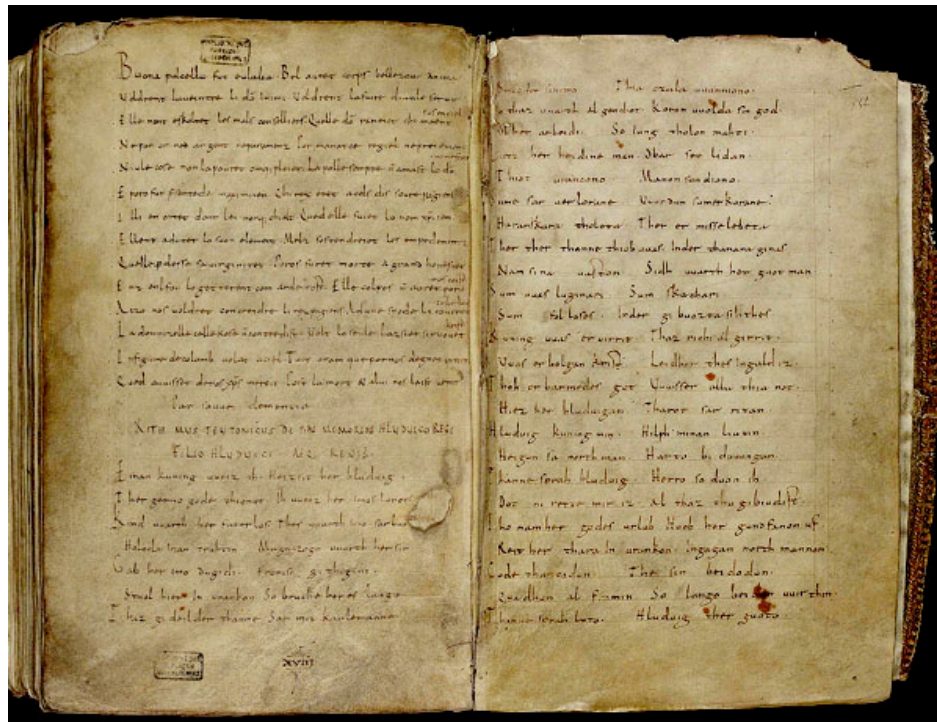 Buona pulcella fut eulalia. Bel auret corps bellezour anima
Voldrent laueintre li dõ Inimi. Voldrent lafaire diaule seruir
Elle nont eskoltet les mals conselliers. Quelle dõ raneiet chi maent sus en ciel
Ne por or ned argent ne paramenz. Por manatce regiel ne preiement
Niule cose non lapouret omq pleier. La polle sempre ñ amast lo dõ menestier
E por o fut presentede maximiien. Chi rex eret a cels dis soure pagiens
Illi en ortet dont lei nonq chielt. Qued elle fuiet lo nom xpiien.
Ellent adunet lo suon element. Melz sostendreiet les empedementz
Quelle perdesse sa uirginitet. Poros furet morte a grand honestet
Enz enl fou lo getterent com arde tost. Elle colpes ñ auret poro nos coist
Aezo nos uoldret concreidre li rex pagiens. Ad une spede li roueret tolir lo chief
La domnizelle celle kose ñ contredist. Volt lo seule lazsier si ruouet krist
In figure de colomb uolat a ciel. Tuit oram que por nos degnet preier
Qued auuisset de nos xps mercit. Post la mort & a lui nos laist uenir
Par souue clementia
RITHMUS TEUTONICUS DE PIAE MEMORIAE HLUDUICO REGE
FILIO HLUDUICI AEQ REGIS.
Einan kuning uueiz ih. Heizsit her hluduig.
Ther gerno gode thionot. Ih uueiz her imos lonot.
Kind uuarth her faterlos. Thes uuarth imo sar buoz
Holoda inan truhtin. Magaczogo uuarth her sin
Gab her imo dugidi. Fronisc githigini.
Stual hier in urankon. So bruche her es lango
Thaz gideilder thanne Sar mit karlemanne
XVIII
Bruoder sinemo Thia czala uuunniono.
So thaz uuarth al gendiot Koron uuolda sin god.
Ob her arbeidi. So iung tholon mahti.
Lietz her heidine man. Obar seo lidan
Thiot urancono. Manon sundiono.
Sume sar uerlorane Uuurdun sumerkorane.
Haranskara tholota Ther er misselebeta
Ther ther thanne thiob uuas. Inder thanana ginas
Nam sina uaston Sidh uuarth her guot man.
Sum uuas luginari. Sum skachari.
Sum fol loses. Inder gibuozta sih thes
Kuning uuas eruirrit. Thaz richi al girrit.
Uuas erbolgan krist. Leidhor thes ingald iz.
Thoh erbarmedes got Uuisser alla thia not.
Hiez her hluduigan Tharot sar ritan.
Hluduig kuning min. Hilph minan liutin.
Heigun sa northman. Harto biduuungan.
Thanne sprah hluduig. Herro so duon ih
Dot ni rette mir iz. Al thaz thu gibiudist.
Tho nam her godes urlub Huob her gundfanon uf.
Reit her thara in urankon. Ingagan northmannon.
Gode thancodun. The sin beidodun.
Quadhun al fromin. So lango beidon uuir thin.
Thanne sprah luto. Hluduig ther guoto.